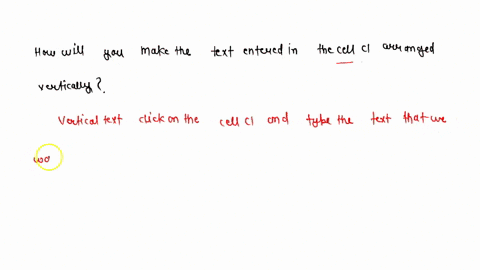 How will you make the text entered in the cell C1 arranged
vertically?
Vertical text click on the cell C1 and type the text that we
wo